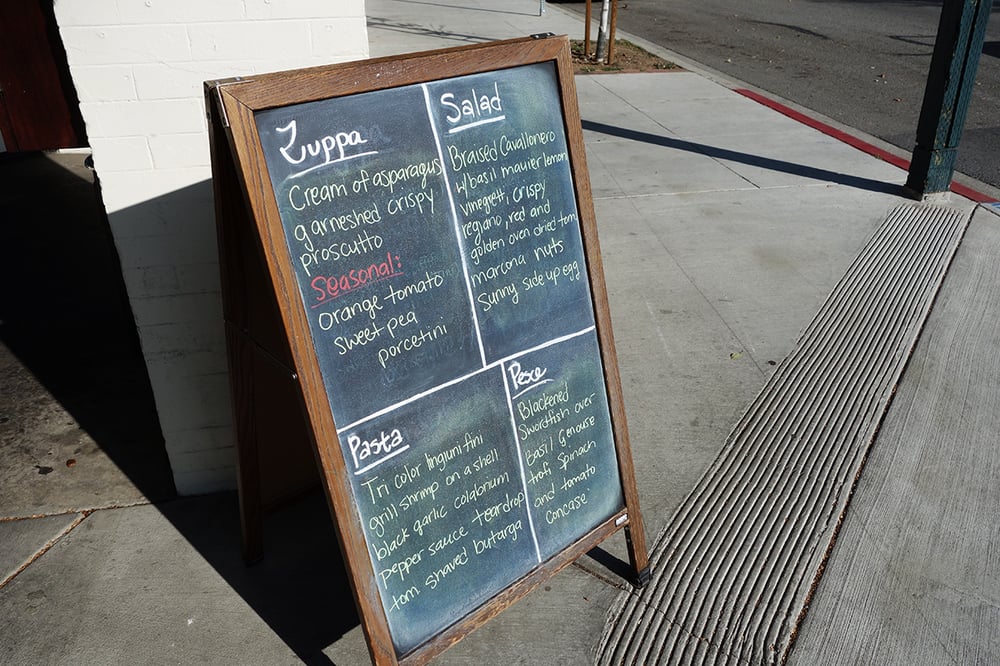 Zuppa
Cream of asparagus
garneshed crispy
proscutto
Seasonal:
Orange tomato
sweet pea
porcetini
Salad
Braised Cavallonero
w/basil mauier lemon
vinegrett, crispy
regiano, red and
golden oven dried tom
marcona nuts
Sunny side up egg
Pasta
Tri color linguini fini
grill shrimp on a shell
black garlic colabrium
pepper sauce teardrop
tom shaved butarga
Pesce
Blackened
Swordfish over
Basil Genouse
trofi spinach
and tomato
concase.